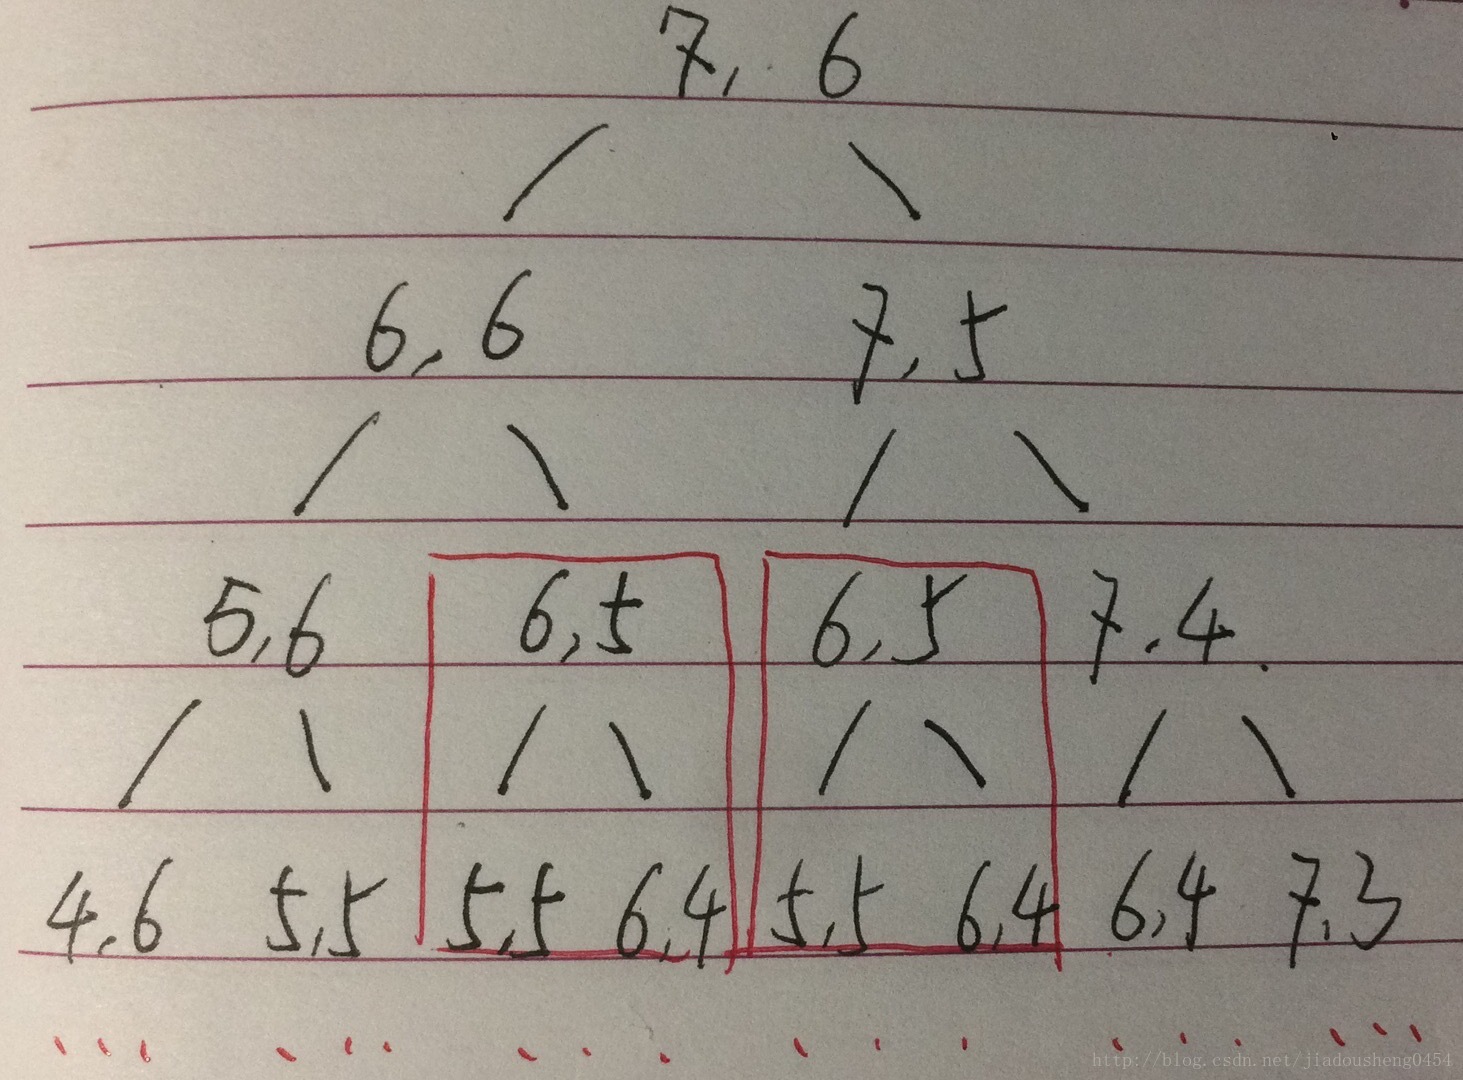 7, 6
6,6 7,5
5,6 6,5 6,5 7.4
4,6 5,5 5,5 6,4 5,5 6,4 6,4 7,3
http://blog.csdn.net/jiadousheng0454